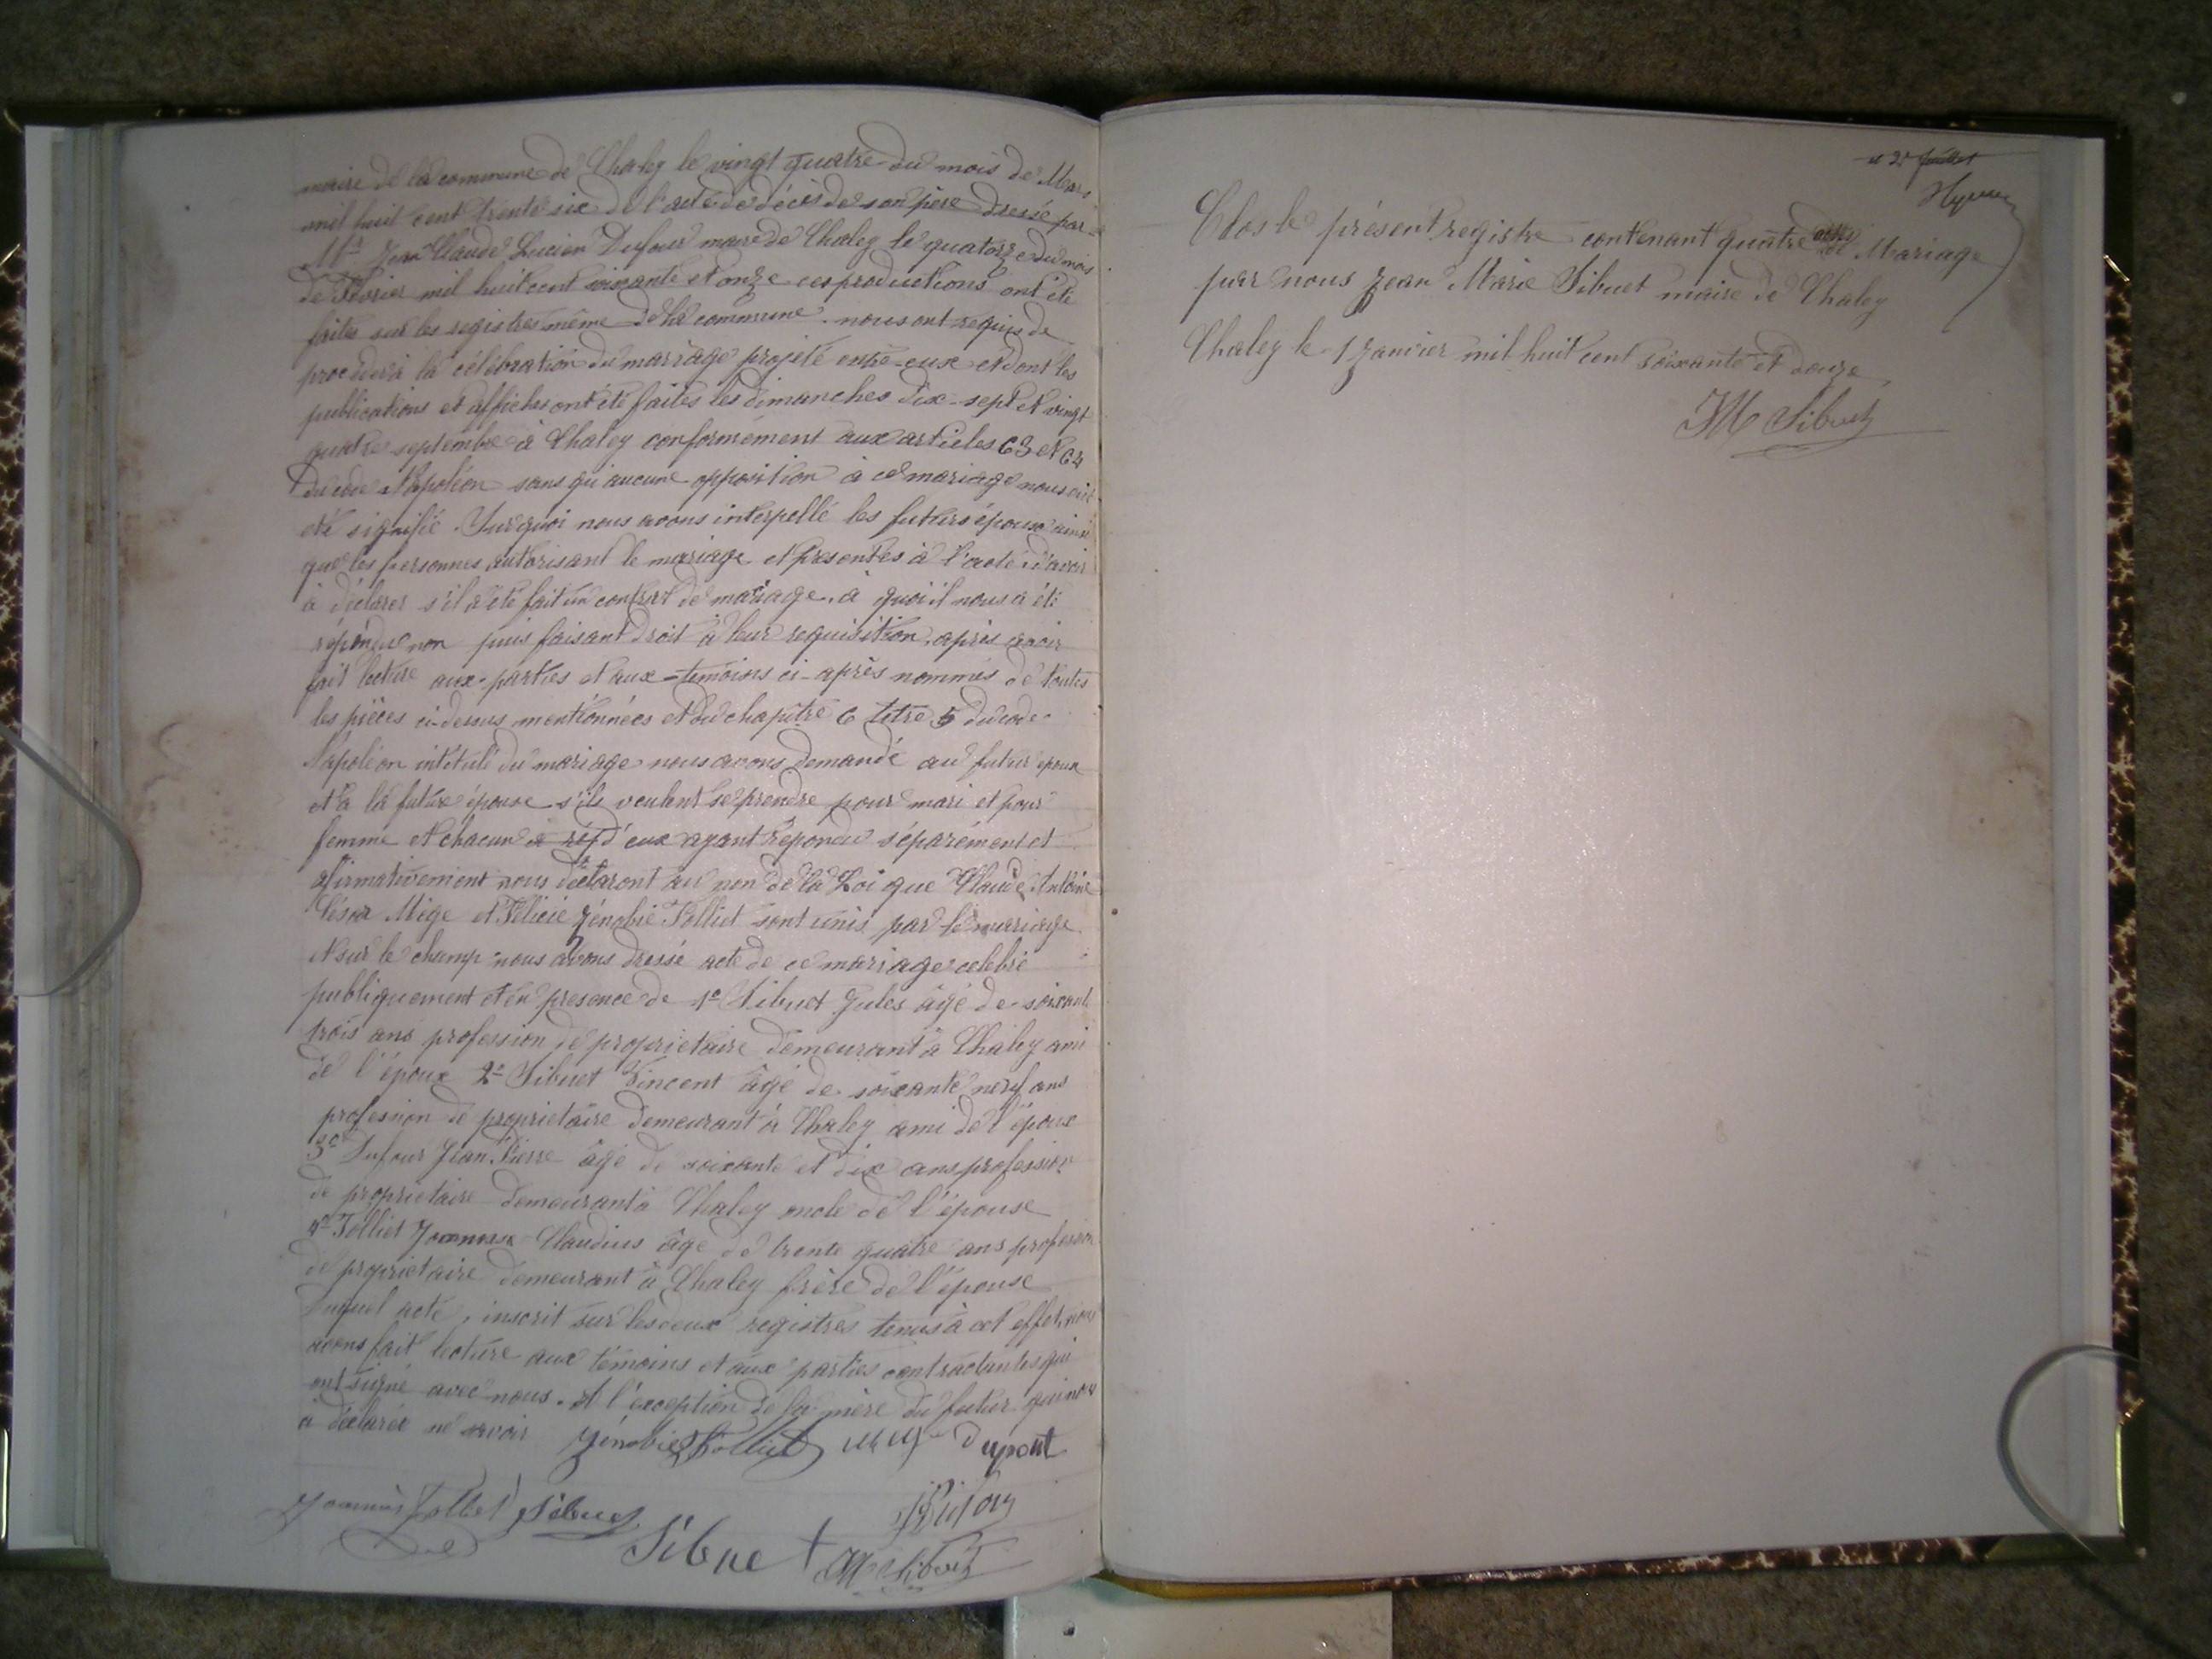 maire de la commune de Chaley le vingt quatre du mois de Mars
mil huit cent trente six de l'acte de décès de son père dressé par
Mr Jean Claude Lucien Dufour maire de Chaley le quatorze du mois
de Février mil huit cent soixante et onze ces productions ont été
faites sur les registres même de la commune. nous ont requis de
proceder à la célébration du mariage projeté entre-eux et dont les
publications et affiches ont été faites les dimanches dix-sept et vingt
quatre septembre à Chaley conformément aux articles 63 et 64
du code Napoléon sans qu'aucune opposition à ce mariage nous ait
été signifié. Sur quoi nous avons interpellé les futurs époux ainsi
que les personnes autorisant le mariage et presentes à l'acte d'avoir
à déclarer s'il a été fait un contrat de mariage, à quoi il nous a été
répondu non puis faisant droit à leur requisition, après avoir
fait lecture aux parties et aux-temoins ci-après nommés de toutes
les pièces ci-dessus mentionnées et du chapitre 6 titre 5 du code
Napoléon intitulé du mariage nous avons demandé au futur époux
et à la future épouse s'ils veulent se prendre pour mari et pour
femme et chacun d'eux ayant répondu séparément et
afirmativement nous déclaront au nom de la Loi que Claude Antoine
César Mige et Félicie Zénobie Tolliet sont unis par le mariage
et sur le champ nous avons dressé acte de ce mariage celebré
publiquement et en presence de 1e Sibuet Jules âgé de soixante
trois ans profession de propriétaire demeurant à Chaley ami
de l'époux 2e Sibuet Vincent âgé de soixante neuf ans
profession de propriétaire demeurant à Chaley ami de l'époux
3e Dufour Jean Pierre âgé de soixante et dix ans profession
de propriétaire demeurant à Chaley oncle de l'épouse
4e Tolliet Claudius âgé de trente quatre ans profession
de propriétaire demeurant à Chaley frère de l'épouse
Duquel acte, inscrit sur les deux registres tenus à cet effet, nous
avons fait lecture aux témoins et aux parties contractantes qui
ont signé avec nous. A l'exception de la mère du futur qui nous
à déclarée ne savoir Zénobie Tolliet Dupont
Joannès Tolliet Sibuet
Sibuet JM Sibuet
et 2e Juillet
Clos le présent registre contenant quatre actes de Mariage
par nous Jean Marie Sibuet maire de Chaley
Chaley le 1 Janvier mil huit cent soixante et douze
JM Sibuet